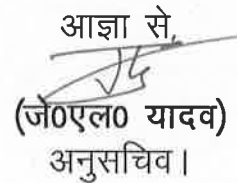 आज्ञा से,
(जे0एल0 यादव)
अनुसचिव।